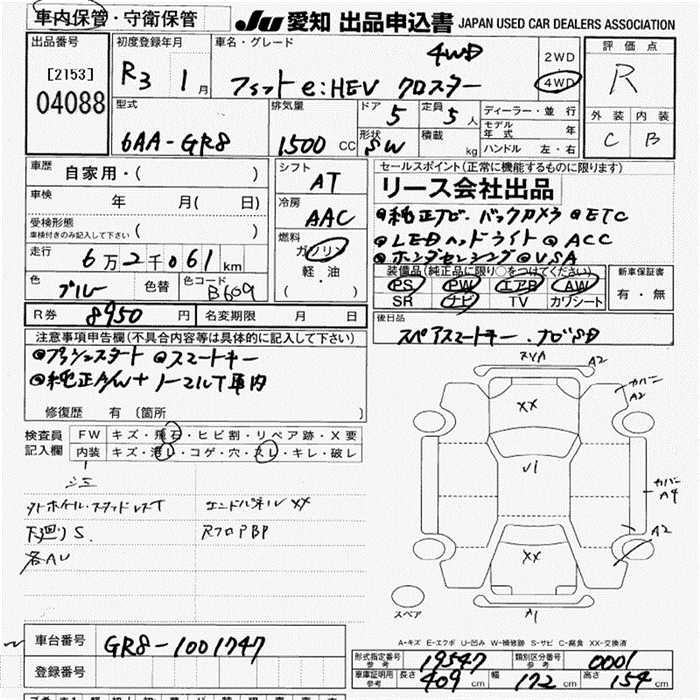 車内保管・守衛保管 JU 愛知 出品申込書 JAPAN USED CAR DEALERS ASSOCIATION
出品番号
[2153]
04088
初度登録年月
R3 1月
車名・グレード
4WD
フィット e:HEV クロスター
2WD
4WD
評価点
R
外装 内装
C B
型式
6AA-GR8
排気量
1500 CC
ドア 5
定員 5人
形状 SW
積載 kg
ディーラー・並行
モデル年式 年
ハンドル 左・右
車歴 自家用・( )
車検 年 月( 日)
受検形態
車検付きのみ記入して下さい ( )
走行 6万2千061km
色 ブルー 色替 色コード B609
シフト AT
冷房 AAC
燃料
ガソリン
軽・油
( )
セールスポイント(正常に機能するものに限ります)
リース会社出品
●純正ナビ・バックカメラ ●ETC
●LEDヘッドライト ●ACC
●ホンダセンシング ●VSA
装備品(純正品に限り○をつけてください)
PS PW エアB AW
SR ナビ TV カワシート
新車保証書
有・無
R券 8950円 名変期限 月 日
後日品
スペアスマートキー、ナビSD
注意事項申告欄(不具合内容等は具体的に記入して下さい)
●プッシュスタート ●スマートキー
●純正A/W+ノーマルT車内
修復歴 有 〔箇所 〕
検査員記入欄
FW キズ・飛石・ヒビ割・リペア跡・X要
内装 キズ・汚レ・コゲ・穴・スレ・キレ・破レ
下廻りS エンドパネルXX
各AU RフロアBP
XX
A2
カバーA2
U1
カバーA4
A2
XX
A1
スペア
A-キズ E-エクボ U-凹み W-補修跡 S-サビ C-腐食 XX-交換済
車台番号 GR8-1001747
登録番号
形式指定番号 参考 19547 類別区分番号 参考 0001
車庫証明用 参考 長さ 409cm 幅 172cm 高さ 154cm